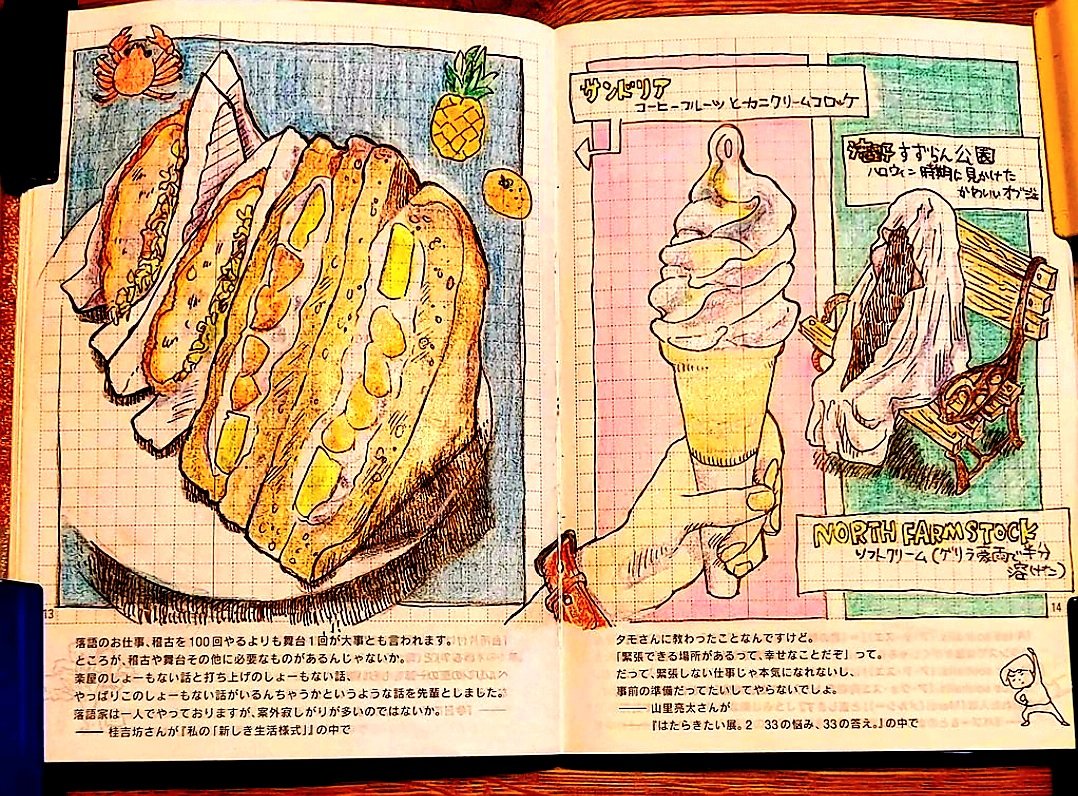 サンドリア
コーヒーフルーツとカニクリームコロッケ
すずらん公園
ハロウィン時期に見かけた
かわいいオブジェ
NORTH FARM STOCK
ソフトクリーム(ゲリラ豪雨で半分
溶けた)
13
14
落語のお仕事、稽古を100回やるよりも舞台1回が大事とも言われます。
ところが、稽古や舞台その他に必要なものがあるんじゃないか。
楽屋のしょーもない話と打ち上げのしょーもない話、
やっぱりこのしょーもない話がいるんちゃうかというような話を先輩としました。
落語家は一人でやっておりますが、案外寂しがりが多いのではないか。
——桂吉坊さんが『私の「新しき生活様式」』の中で
タモさんに教わったことなんですけど。
「緊張できる場所があるって、幸せなことだぞ」って。
だって、緊張しない仕事じゃ本気になれないし、
事前の準備だってたいしてやらないでしょ。
——山里亮太さんが
『はたらきたい展。2 33の悩み、33の答え。』の中で